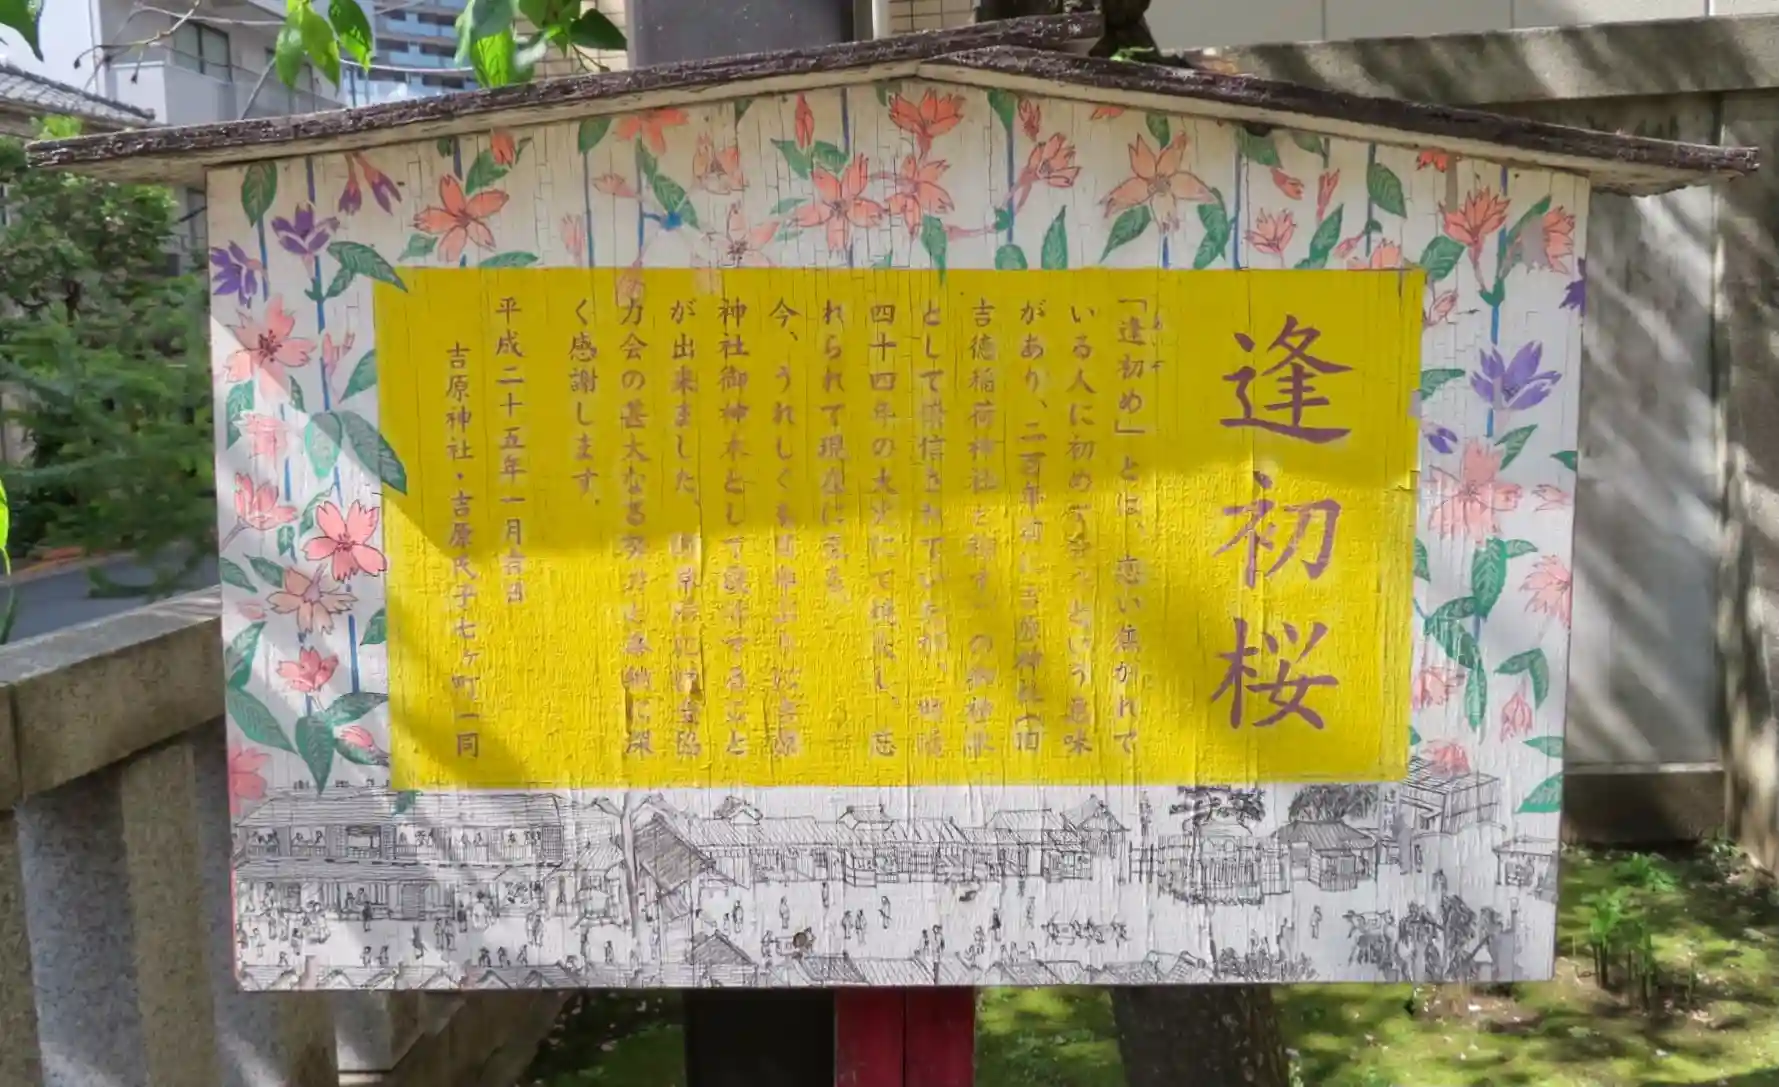 逢初桜
あ そ
「逢初め」とは、恋い焦がれて
いる人に初めて会うという意味
があり、二百年前に吉原神社(旧
吉徳稲荷神社と称す)の御神木
として崇信されていたが、明治
四十四年の大火にて焼失し、忘
れられて現在に至る。
今、うれしくも
神社御神木として復活すること
が出来ました。
力会の甚大なる努力と奉納に深
く感謝します。
平成二十五年一月吉日
吉原神社・吉原氏子七ヶ町一同